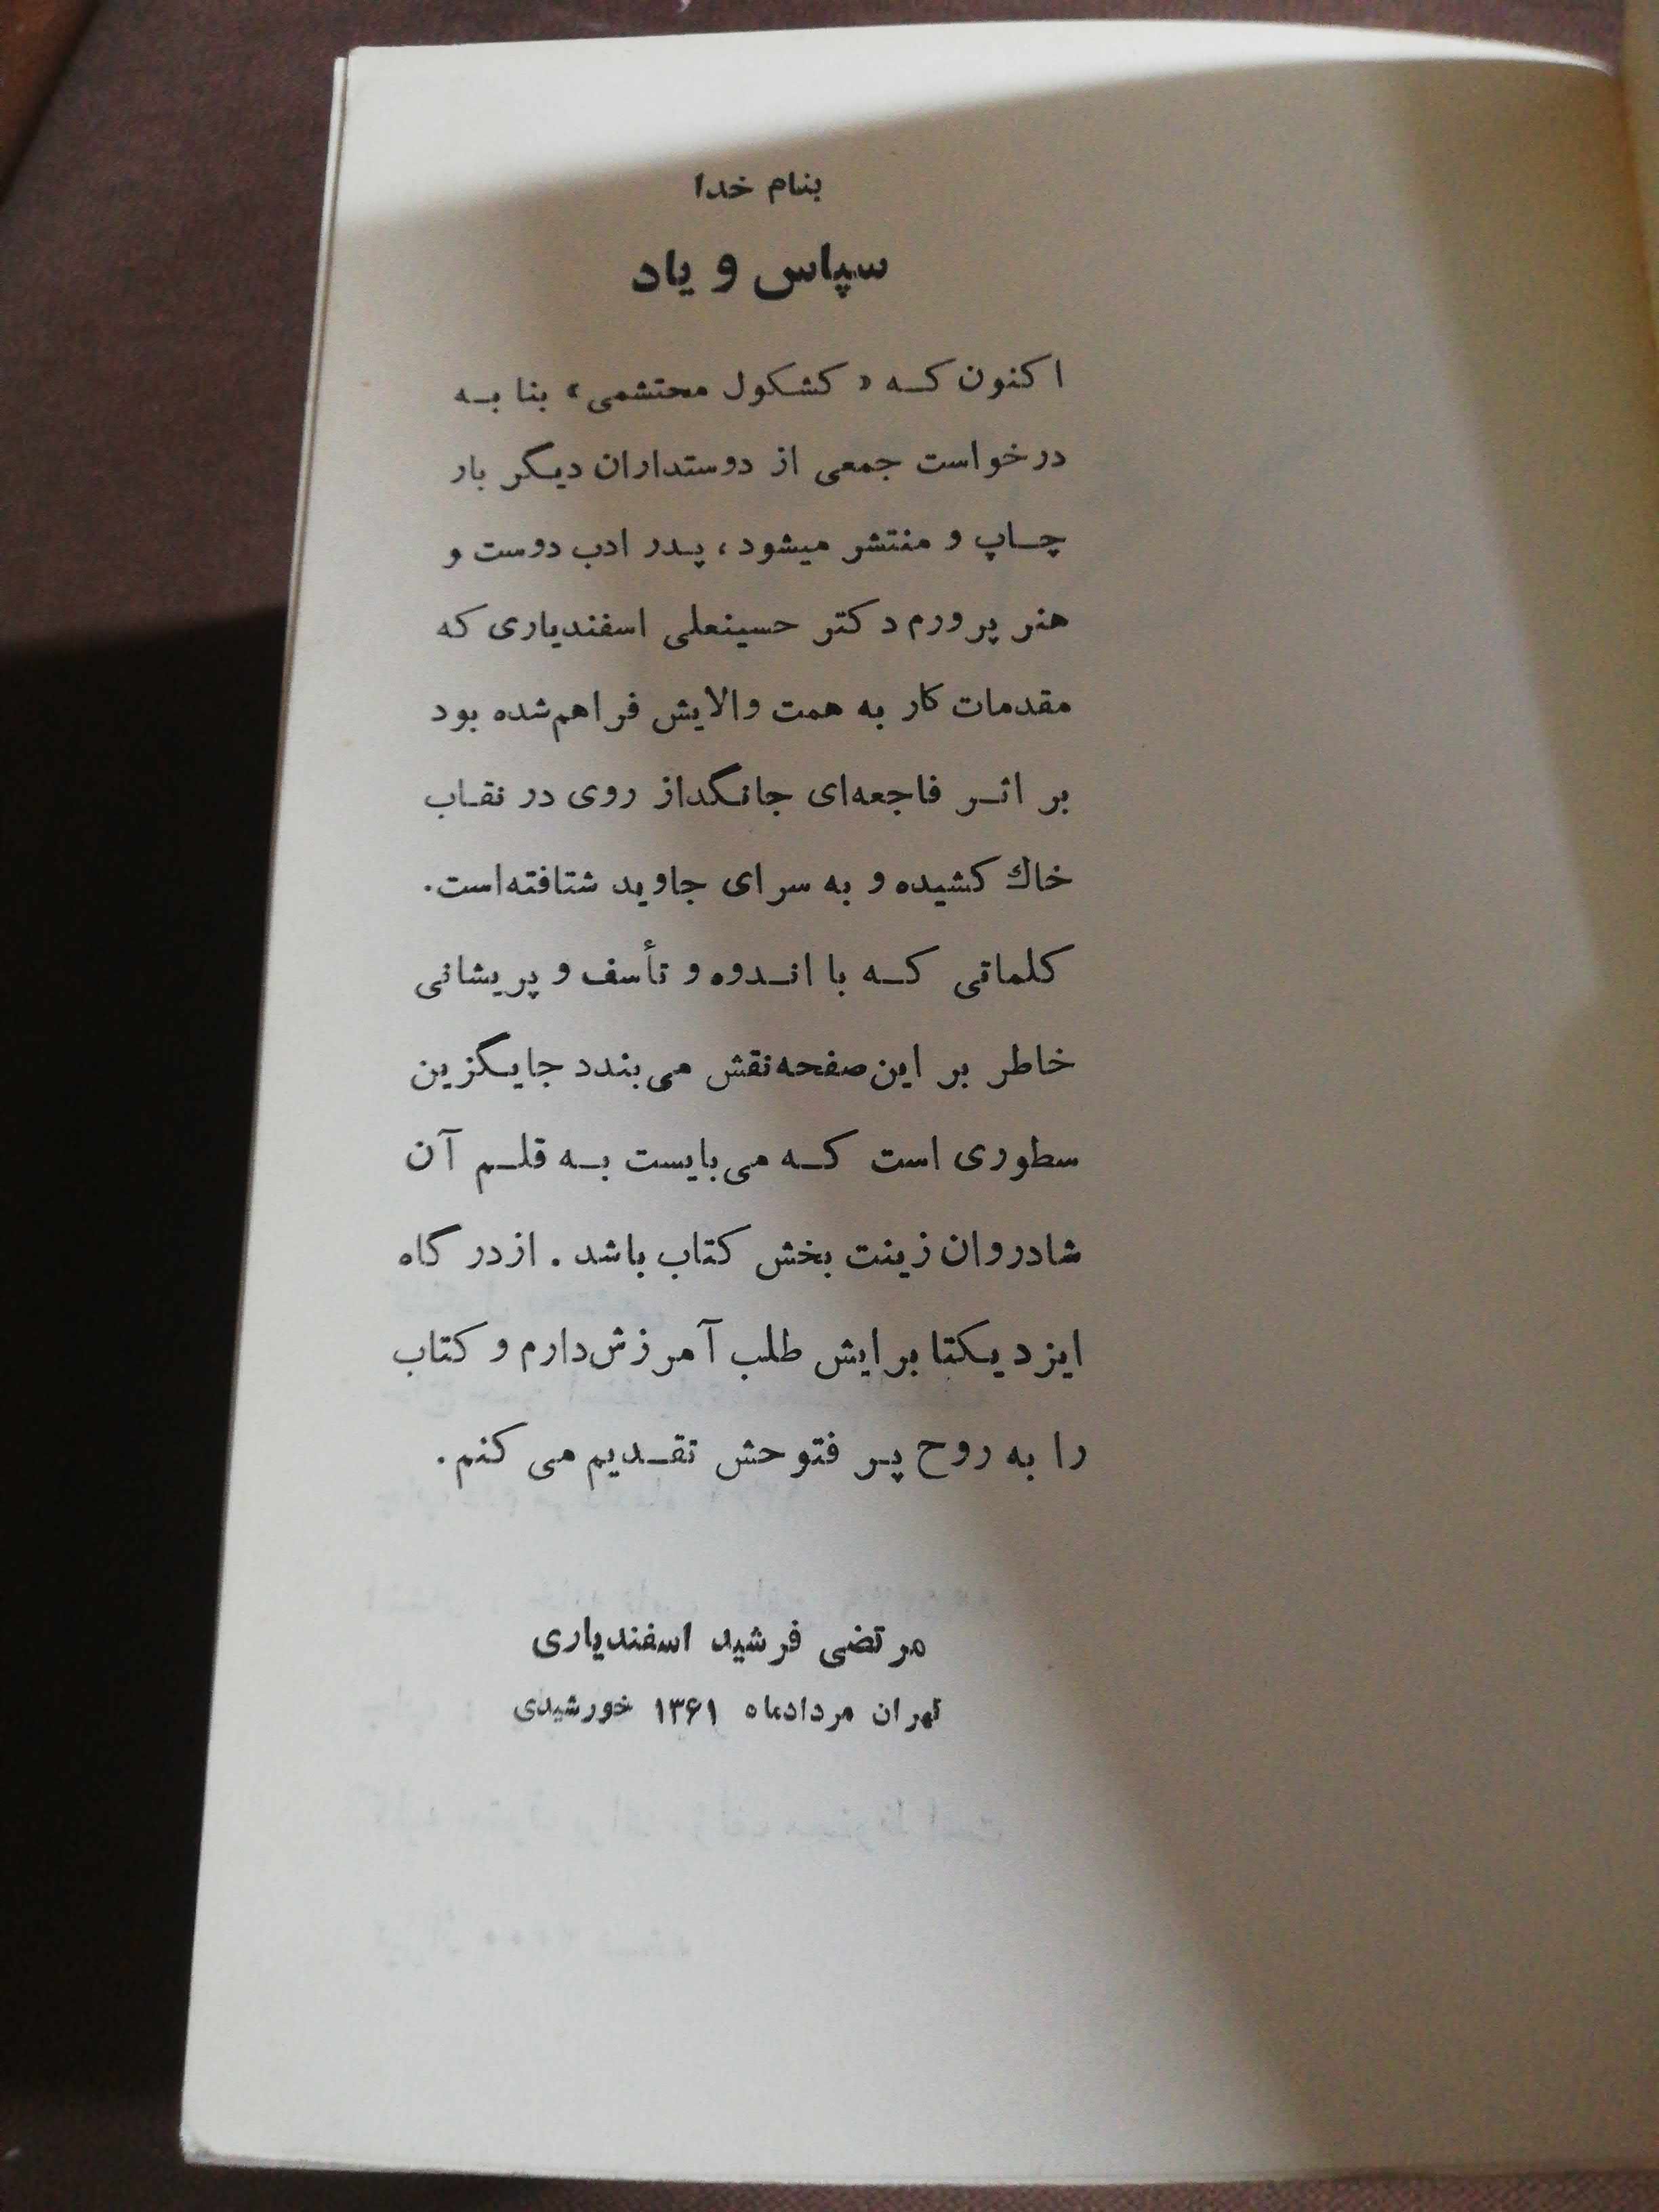 بنام خدا
سپاس و یاد
اکنون که «کشکول محتشمی» بنا به
درخواست جمعی از دوستداران دیگر بار
چاپ و منتشر میشود، پدر ادب دوست و
هنر پرورم دکتر حسینعلی اسفندیاری که
مقدمات کار به همت والایش فراهم‌شده بود
بر اثر فاجعه‌ای جانگداز روی در نقاب
خاك کشیده و به سرای جاوید شتافته‌است.
کلماتی که با اندوه و تأسف و پریشانی
خاطر بر این صفحه نقش می‌بندد جایگزین
سطوری است که می‌بایست به قلم آن
شادروان زینت بخش کتاب باشد. از درگاه
ایزد یکتا برایش طلب آمرزش دارم و کتاب
را به روح پر فتوحش تقدیم می کنم.
مرتضی فرشید اسفندیاری
تهران مردادماه ۱۳۶۱ خورشیدی